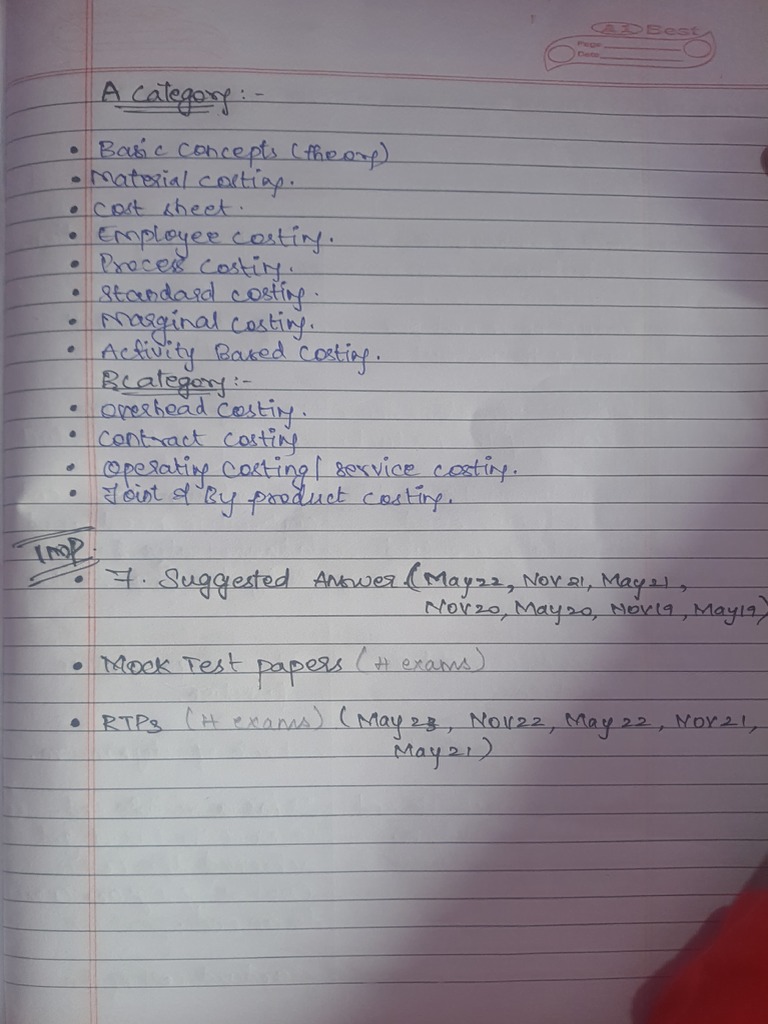 A1 Best
Page
Date
A category:-
• Basic concepts (theory)
• Material costing.
• cost sheet.
• Employee costing.
• Process costing.
• standard costing.
• Marginal costing.
• Activity Based costing.
B category:-
• overhead costing.
• contract costing
• operating costing/ service costing.
• Joint & By product costing.
Imp.
• 7. Suggested Answer (May22, Nov21, May21,
Nov20, May20, Nov19, May19)
• Mock Test papers (4 exams)
• RTPs (4 exams) (May 23, Nov22, May 22, Nov21,
May21)